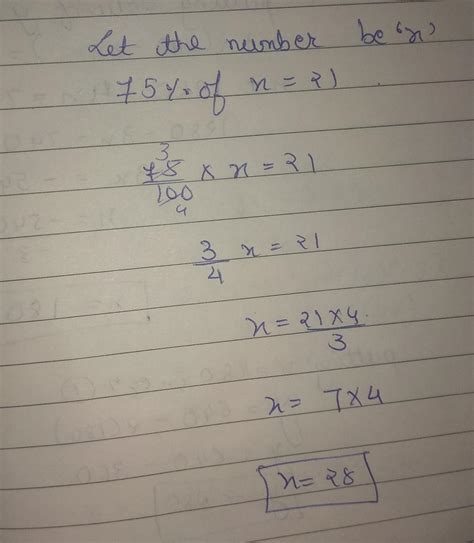 Let the number be 'x'
75% of x = 21
3
75/100 × x = 21
4
3/4 x = 21
x = 21×4/3
x = 7×4
x = 28